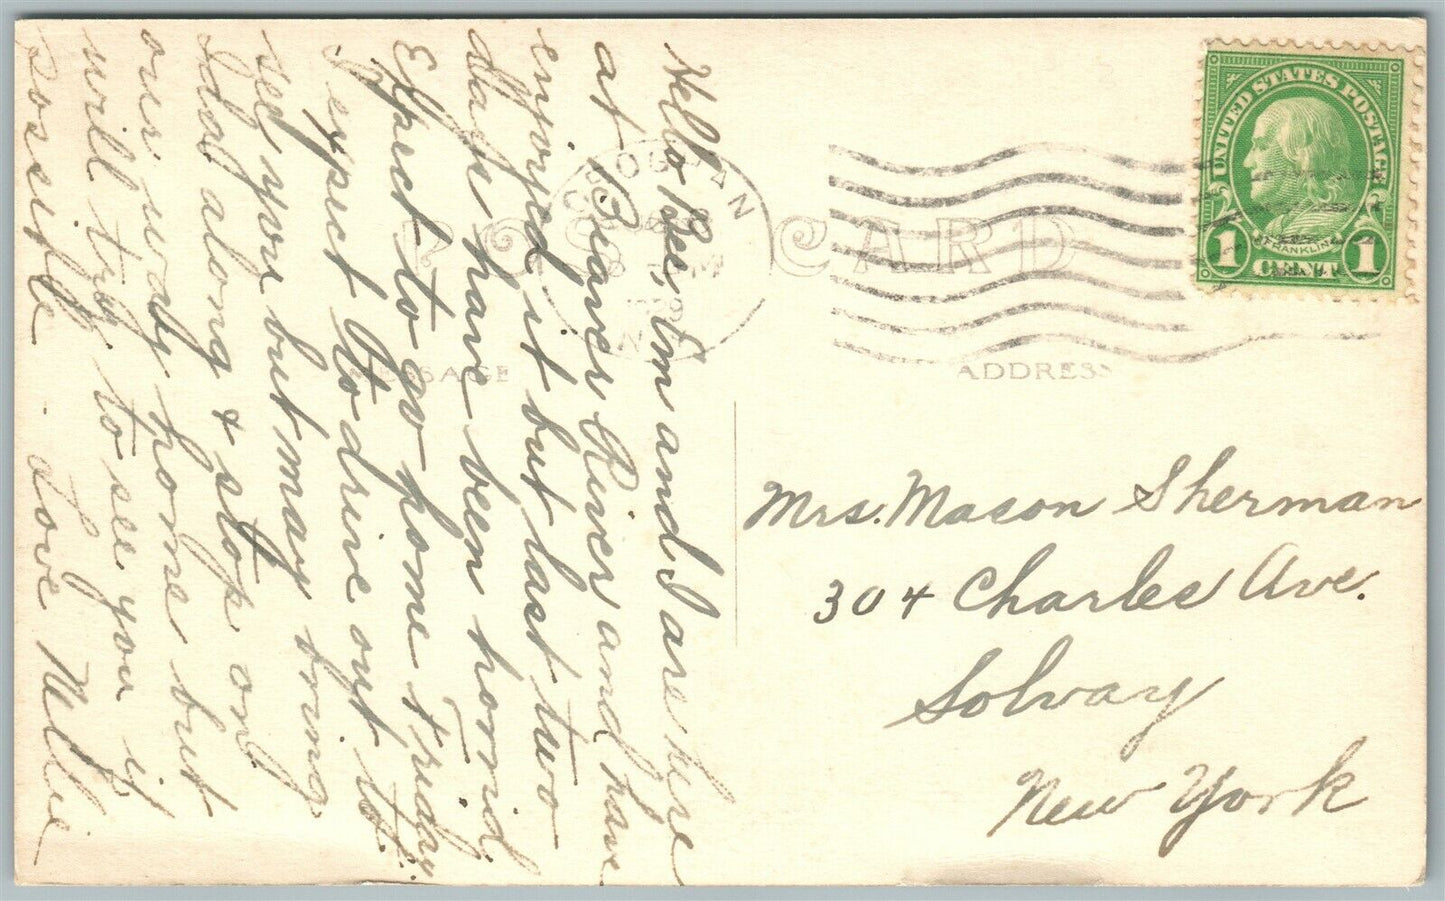 Hello Bee, Em and I are here
at Beaver River and have
enjoyed it but last two
days have been horrid
Expect to go home Friday
I expect Ato drive out to
see you but may bring
Ida along & stop on
our way home but
will try to see you if
possible. Love Nellie
CROGHAN
N.Y.
POST CARD
MESSAGE
ADDRESS
UNITED STATES POSTAGE
FRANKLIN
1 CENT 1
Mrs. Mason Sherman
304 Charles Ave.
Solvay
New York